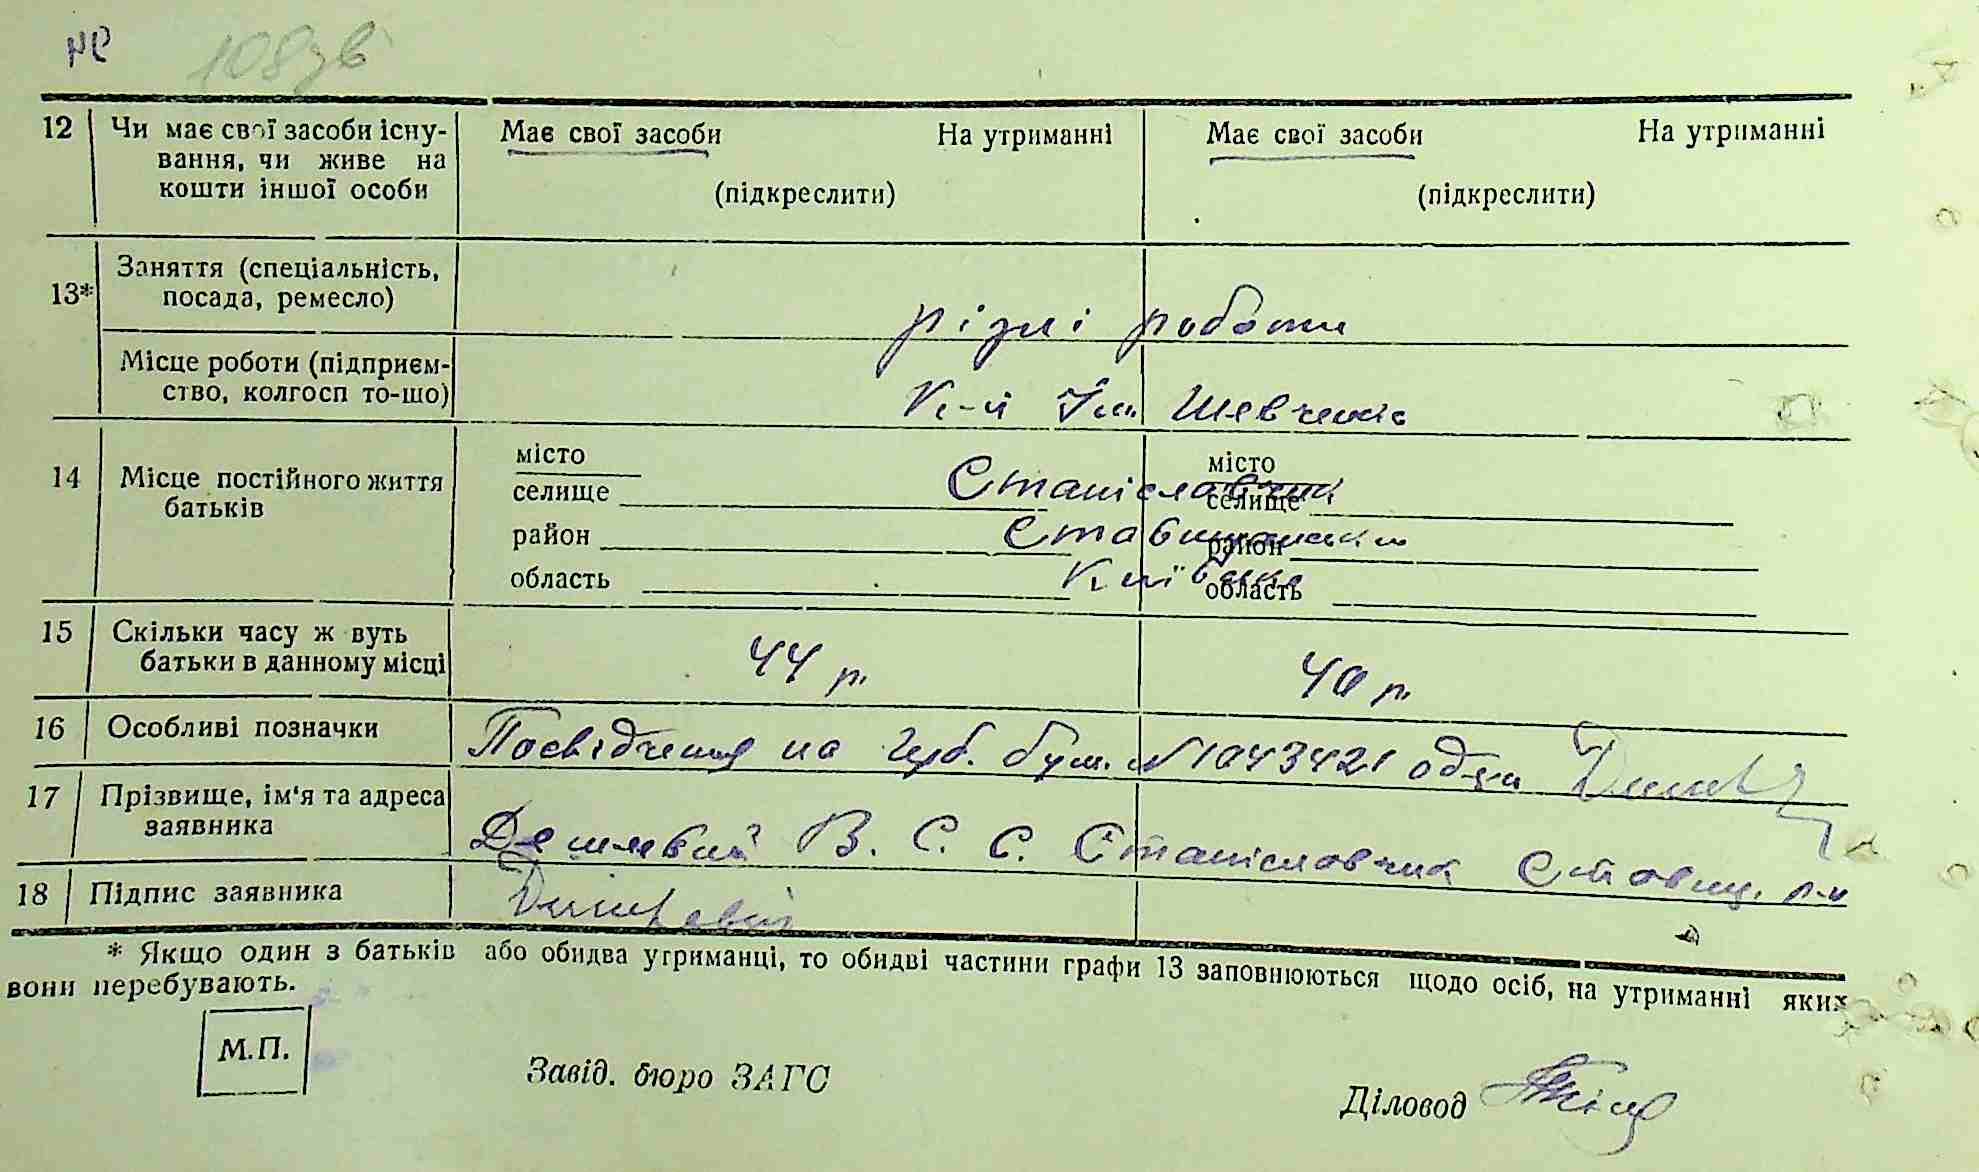 №
108зв
12 Чи має свої засоби існу- Має свої засоби На утриманні Має свої засоби На утриманні
вання, чи живе на
кошти іншої особи (підкреслити) (підкреслити)
Заняття (спеціальність,
13* посада, ремесло) різні роботи
Місце роботи (підприєм-
ство, колгосп то-що) К-п Ім. Шевченка
місто місто
14 Місце постійного життя селище Станіславчик селище
батьків
район Ставищанський район
область Київська область
15 Скільки часу ж вуть 44 р. 40 р.
батьки в данному місці
16 Особливі позначки Посвідчення на герб. бум. № 1043421 од-ли
17 Прізвище, ім'я та адреса
заявника Дешевий В. С. С. Станіславчик Ставищ. р-н
18 Підпис заявника
* Якщо один з батьків або обидва утриманці, то обидві частини графи 13 заповнюються щодо осіб, на утриманні яких
вони перебувають.
М.П.
Завід. бюро ЗАГС
Діловод